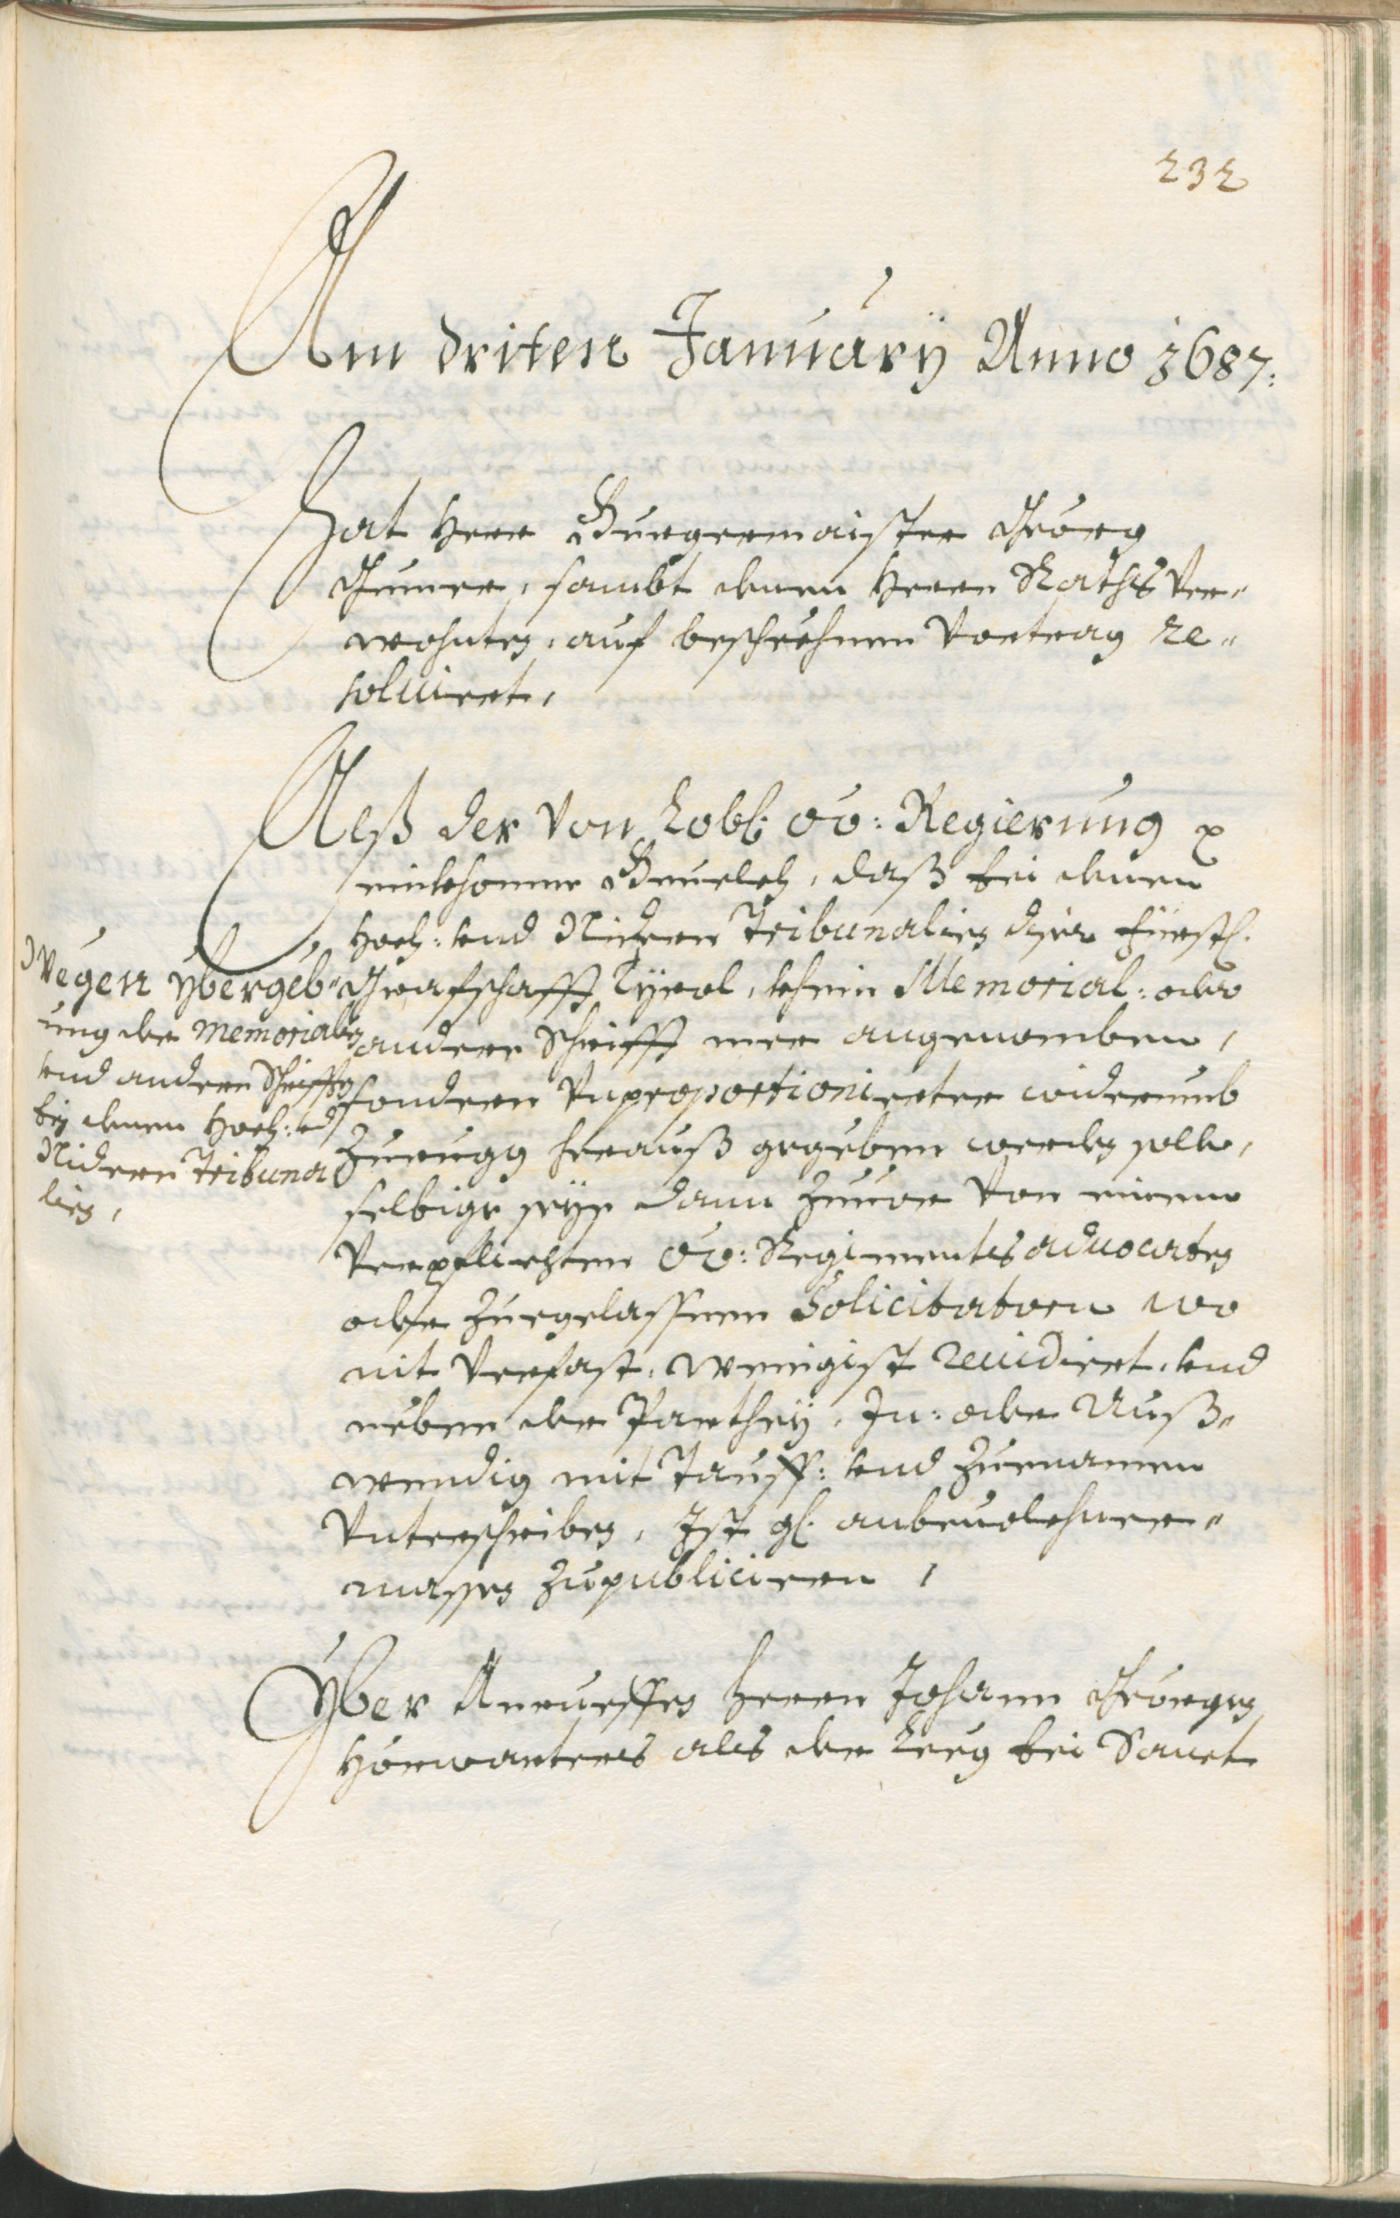 232
Am driten January Anno 1687:
Hat Herr Burgermaister Georg
sambt denen Herrn Raths Ver-
wohnten, auf beschehnen Vortrag re-
soluiert,
Aeß der von Löbl: oö: Regierung
einkhomne Beuelch, daß bei denen
Hoch: und Nidern Tribunalien dser Fürstl.
Grafschafft Tyrol, khein Memorial: oder
andere Schrifft mer angenomben,
sondern Vnproportionierter widerumb
Zurugg herauß gegeben werden solle,
selbige seye dann Zuuor von einem
Verpflichten oö: Regiments aduocaten
oder Zuegelassnen Solicitatorn wo
nit Verfast, wenigist reuidiert, und
neben der Parthey, In: oder Auß-
wendig mit Tauff: und Zuenamen
Vnterschriben, Ist gl. anbeuolchner-
massen Zupublicieren,
Wegen ybergeb-
ung der Memorialen
und andern Schrifften
bey denen Hoch: und
Nidern Tribuna
lien,
Yber Anrueffen Herrn Johann Georgen
Hörwarters als der Zeug bei Sanct